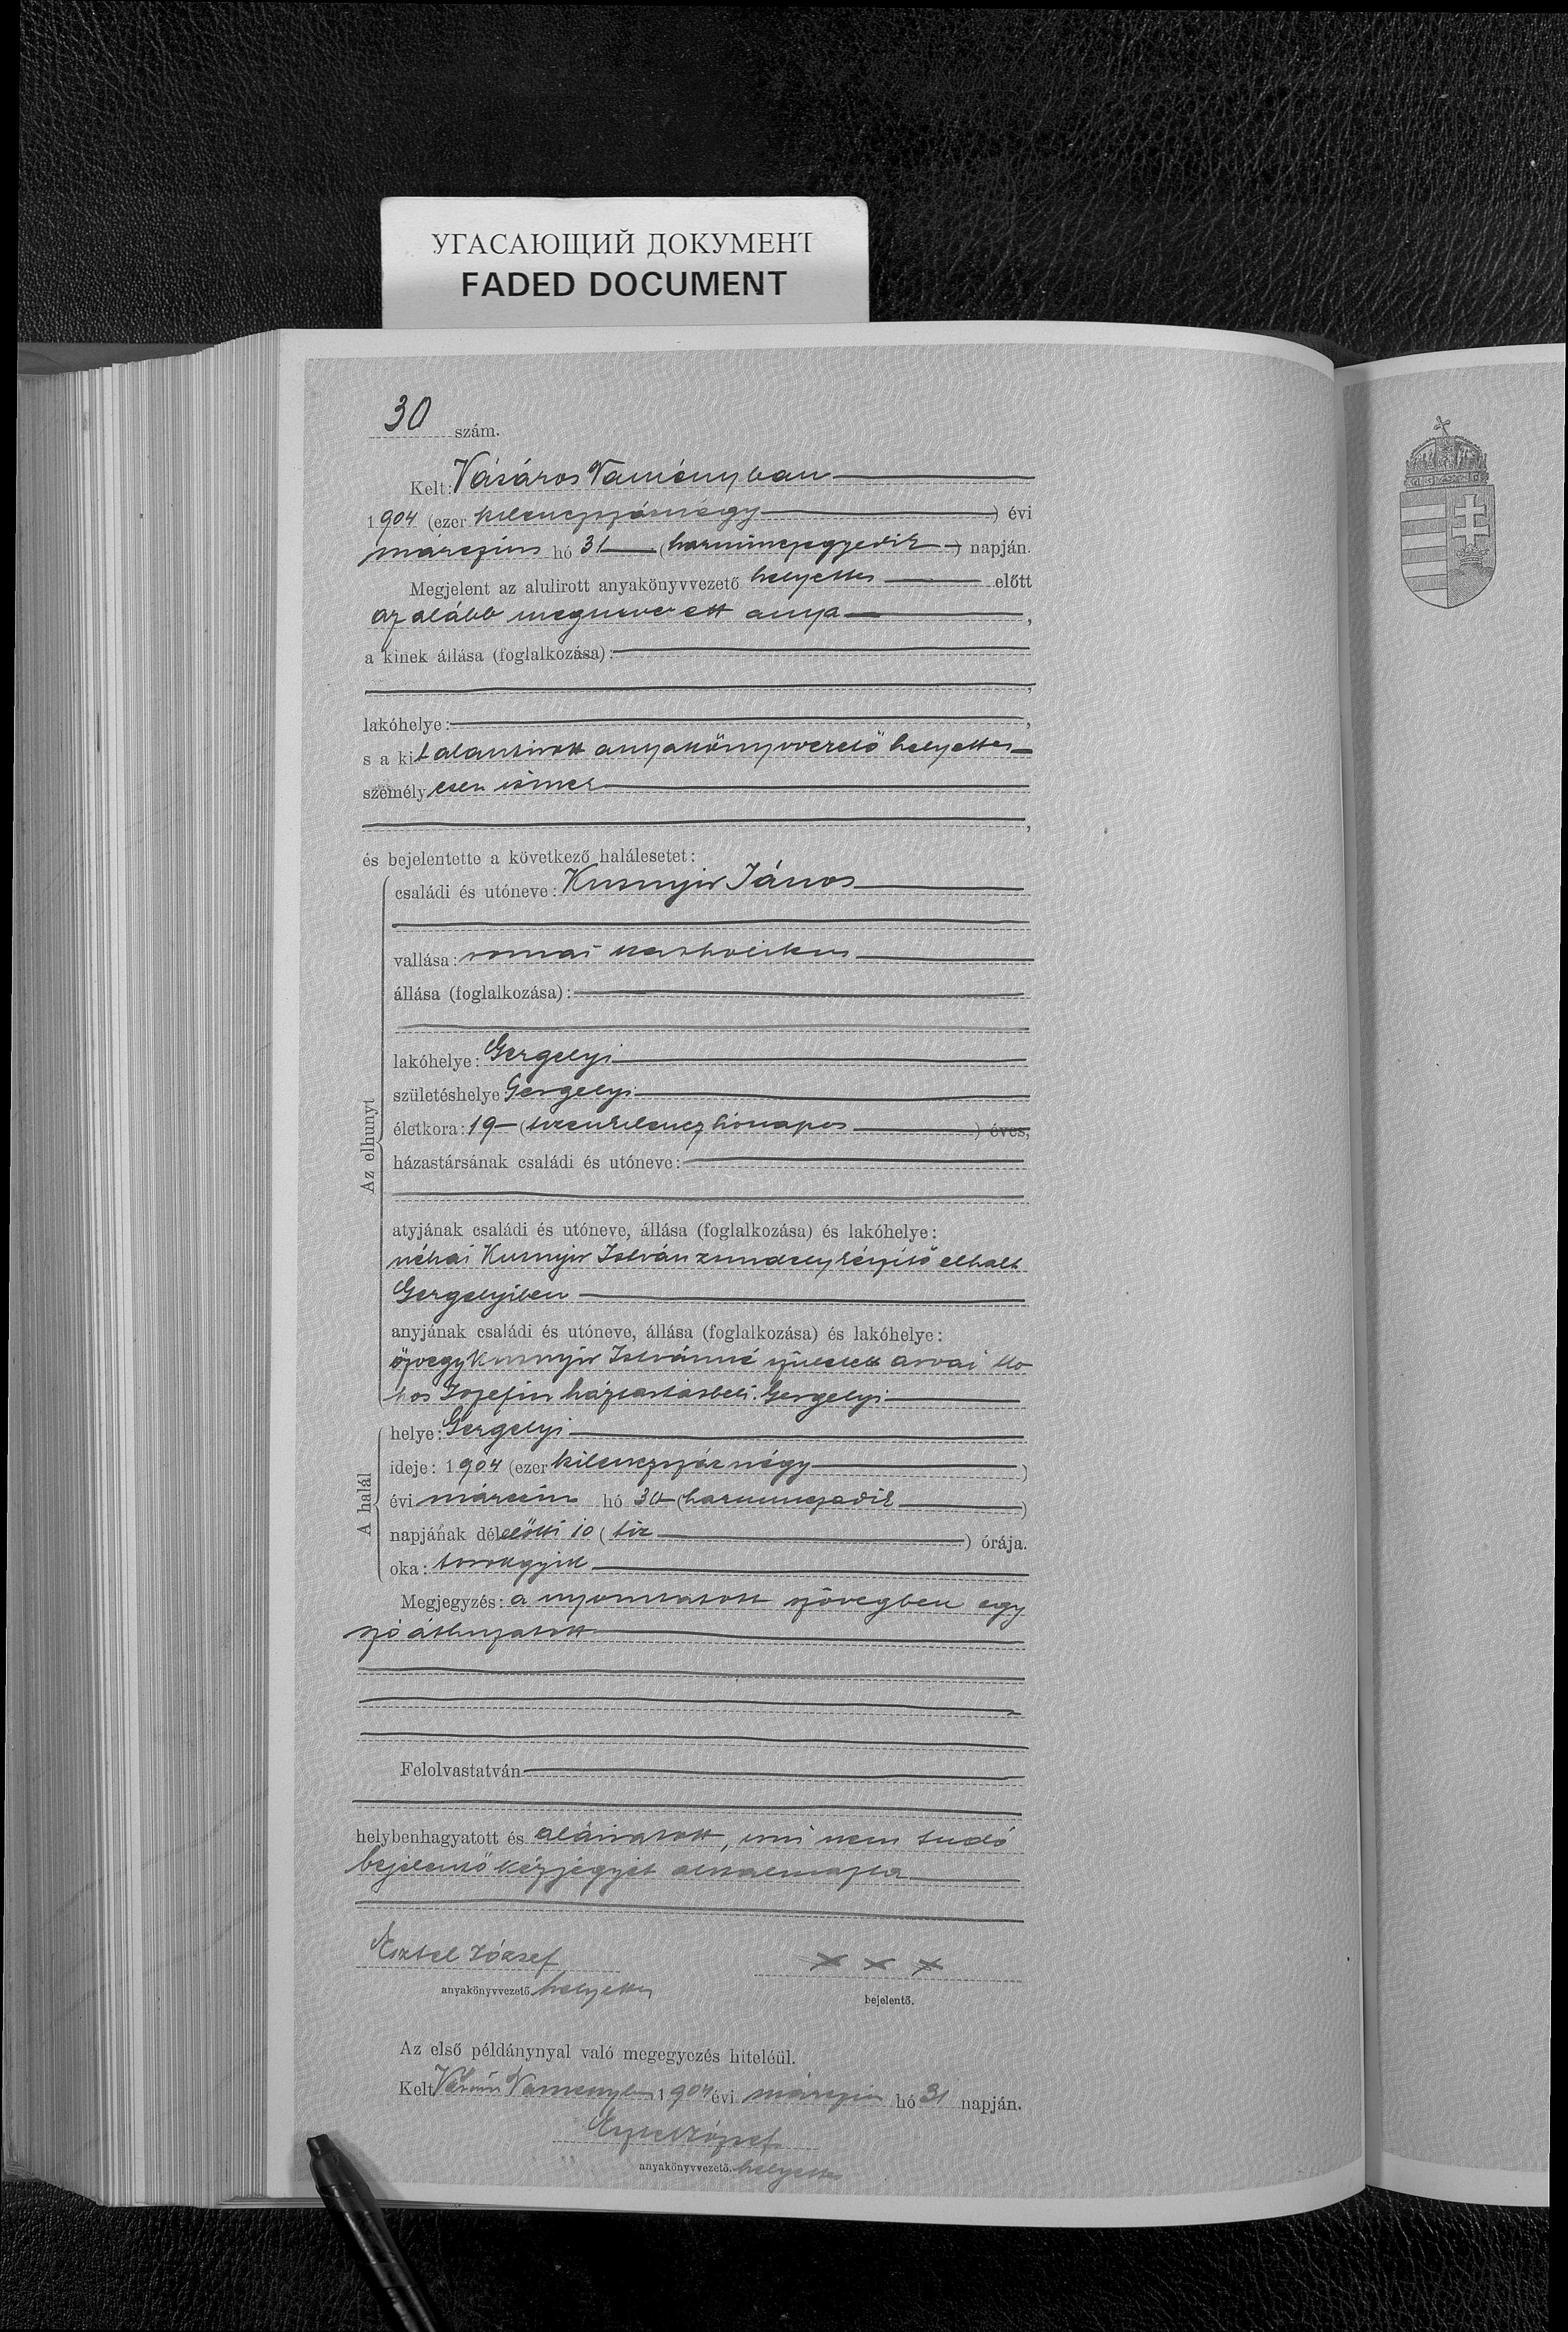 УГАСАЮЩИЙ ДОКУМЕНТ
FADED DOCUMENT
30 szám.
Kelt: Vásáros Naményban
1904 (ezer kilenczszáznégy) évi
márczius hó 31 (harminczegyedik) napján.
Megjelent az alulirott anyakönyvvezető helyettes előtt
az alább megnevezett anya,
a kinek állása (foglalkozása):
,
lakóhelye: ,
s a kit alantirott anyakönyvvezető helyettes
személyesen ismer
,
és bejelentette a következő halálesetet:
Az elhunyt
családi és utóneve: Kusnyir János
vallása: romai katholikus
állása (foglalkozása):
lakóhelye: Gergelyi
születéshelye: Gergelyi
életkora: 19 (tizenkilencz hónapos) éves,
házastársának családi és utóneve:
atyjának családi és utóneve, állása (foglalkozása) és lakóhelye:
néhai Kusnyir István zsindely készítő elhalt
Gergelyiben
anyjának családi és utóneve, állása (foglalkozása) és lakóhelye:
özvegy Kusnyir Istvánné született arvai
Jozefin háztartásbeli. Gergelyi
A halál
helye: Gergelyi
ideje: 1904 (ezer kilenczszáz négy)
évi márczius hó 30 (harminczadik)
napjának délelőtti 10 (tiz) órája.
oka: torokgyik
Megjegyzés: a nyomtatott szövegben egy
szó áthuzatott
Felolvastatván
helybenhagyatott és aláiratott, irni nem tudó
bejelentő kézjegyét alkalmazta
Esztel József
anyakönyvvezető helyettes
x x x
bejelentő.
Az első példánynyal való megegyezés hiteléül.
Kelt Vásáros Naményban 1904 évi márczius hó 31 napján.
Esztel József
anyakönyvvezető. helyettes